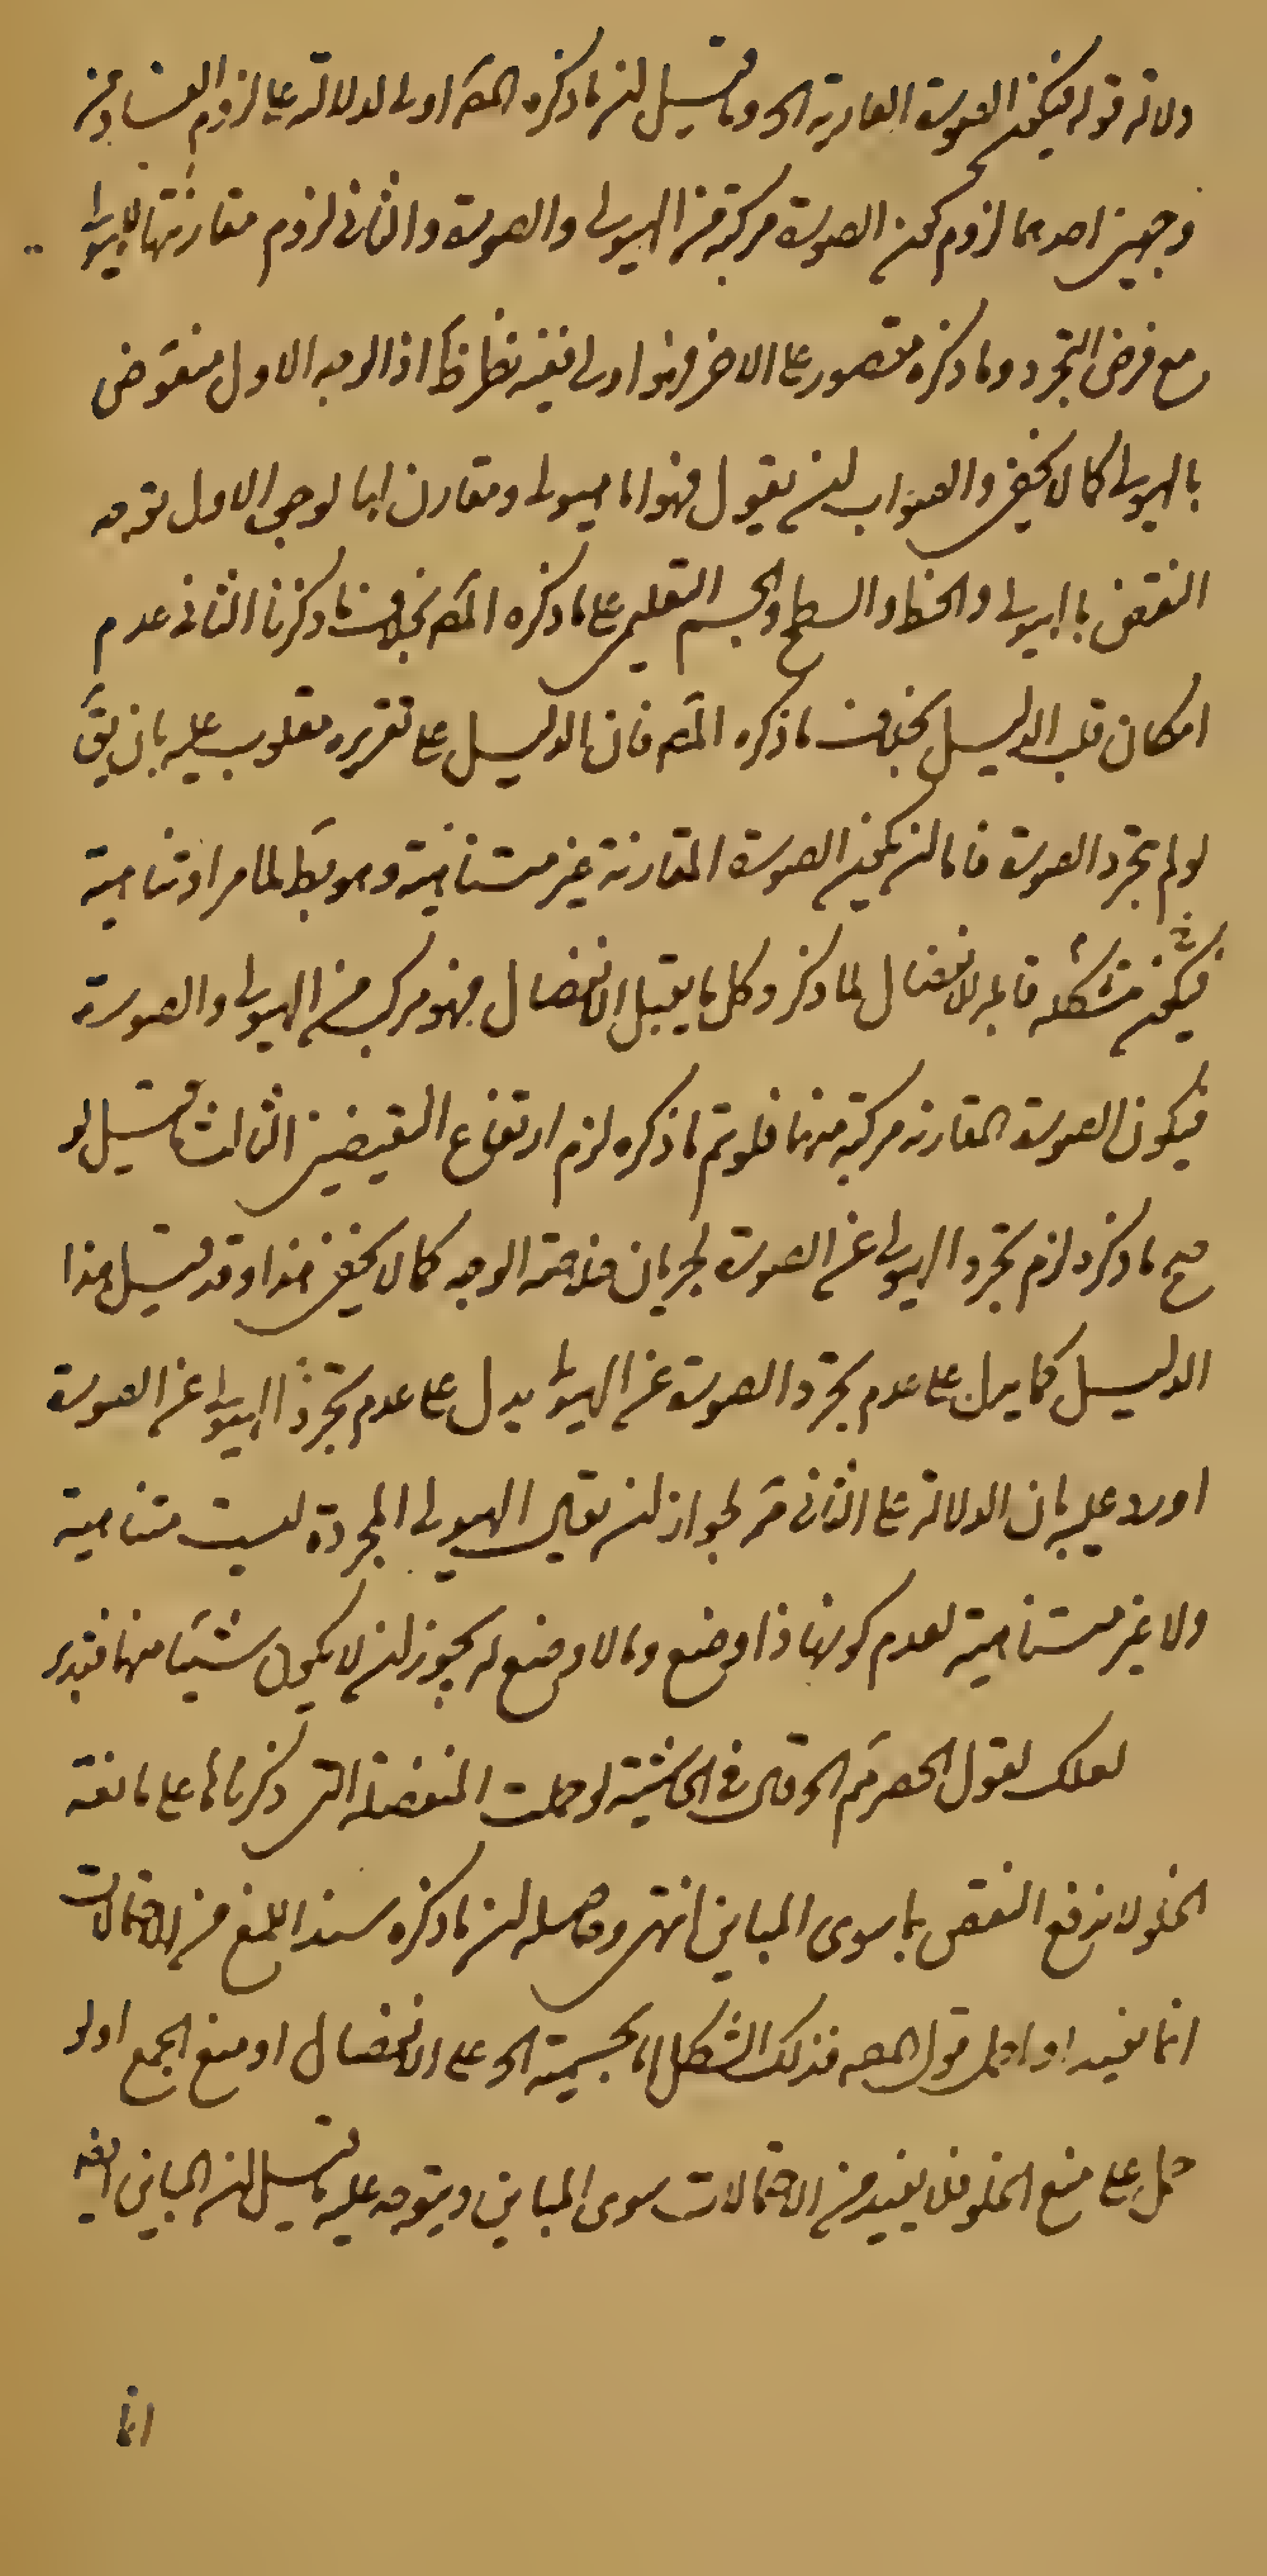 ولا ته قوله فيكون الصورة العارية الخ وما قيل ان ما ذكره المصـ اولى لدلالته على لزوم الفساد من
وجهين احدهما لزوم كون الصورة مركبة من الهيولى والصورة والثانى لزوم مقارنتها للهيولى
مع فرض التجرد وما ذكره مقصور على الاخر فهو اولى ففيه نظر ظ اذ الوجه الاول منقوض
بالهيولى كما لا يخفى والصواب ان يقول فهو اما هيولى ومقارن لها لوجهين الاول توجه
النقض بالهيولى والخط والسطح والجسم التعليمى على ما ذكره المصـ بخلاف ما ذكرنا الثانى عدم
امكان قلب الدليل بخلاف ما ذكره المصـ فان الدليل على تقريره مقلوب عليه بان يق
لو لم تجرد الصورة فاما ان يكون الصورة المقارنة غير متناهية وهو بط لما مر او متناهية
فيكون متشكلة قابلة للانفصال لما ذكر وكل ما يقبل الانفصال فهو مركب من الهيولى والصورة
فيكون الصورة المقارنة مركبة منهما فلو تم ما ذكره لزم ارتفاع النقيضين الثالث ما قيل لو
صح ما ذكره لزم تجرد الهيولى عن الصورة لجريان خلاصة الوجه كما لا يخفى هذا وقد قيل هذا
الدليل كما يدل على عدم تجرد الصورة عن الهيولى يدل على عدم تجرد الهيولى عن الصورة
اورد عليه بان الدلالة على الثانى مم لجواز ان يقال الهيولى المجردة ليست متناهية
ولا غير متناهية لعدم كونها ذا وضع وما لا وضع له يجوز ان لا يكون شيئا منهما فتدبر
لعلك تقول الحصر مم الخ وقال فى الحاشية لو حملت المنفصلة التى ذكرناها على مانعة
الخلو لا ندفع النقض بما سوى المباين انتهى وحاصله ان ما ذكره سند اللمنع من الاحتمالات
انما يفيد لو حمل قول المصـ فذلك الشكل اما للجسمية الخ على الانفصال او منع الجمع او لو
حمل على منع الخلو فلا يفيد من الاحتمالات سوى المباين ويتوجه عليه ما قيل ان المباين ايضا
انما